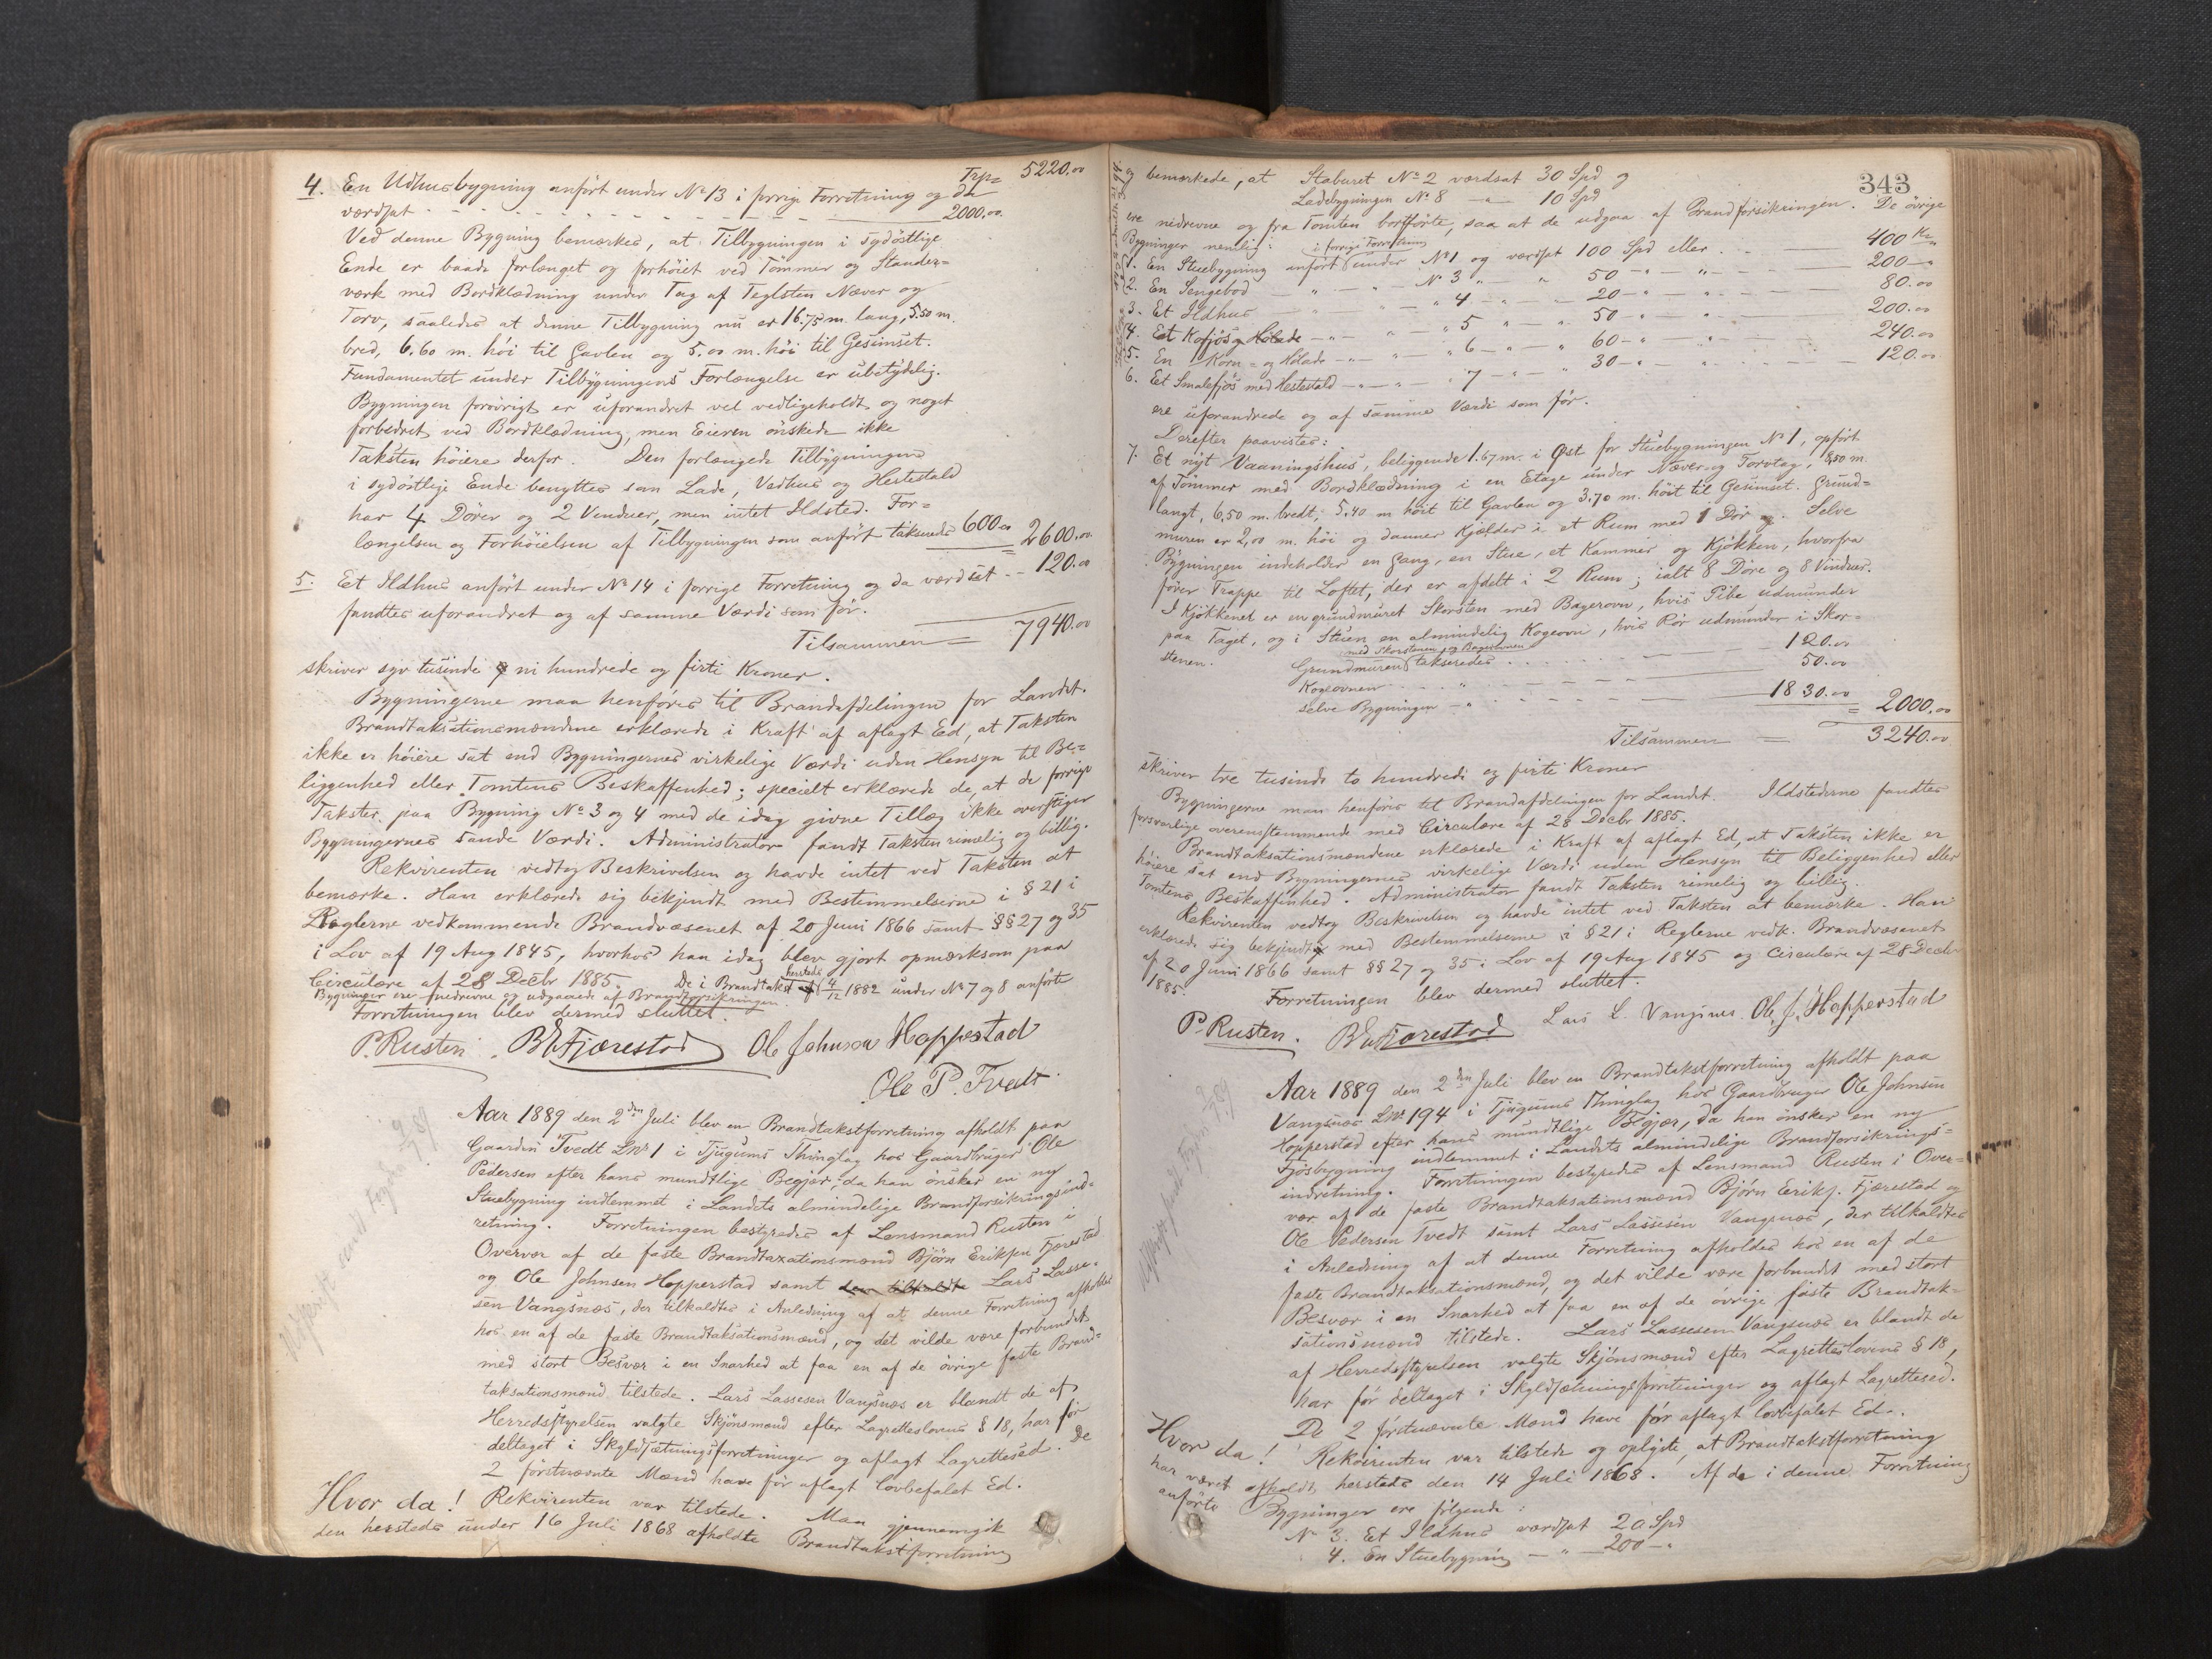 Trp= 5220.00
4. En Udhusbygning anført under No 13 i forrige Forretning og da
værdsat - - - - - - - - - - - - - 2000.00
Ved denne Bygning bemærkes, at Tilbygningen i sydöstlige
Ende er baade forlænget og forhöiet ved Tömmer og Stander=
værk med Bordklædning under Tag af Teglsten Næver og
Torv, saaledes at denne Tilbygning nu er 16.75 m. lang, 5.50 m.
bred, 6.60 m. höi til Gavlen og 5.00 m. höi til Gesimset.
Fundamentet under Tilbygningens Forlængelse er ubetydelig.
Bygningen forøvrigt er uforandret vel vedligeholdt og noget
forbedret ved Bordklædning, men Eieren önskede ikke
Taksten höiere derfor. Den forlængede Tilbygningen
i sydöstlige Ende benyttes som Lade, Vedhus og Hestestald
har 4 Dörer og 2 Venduer, men intet Ildsted. For=
længelsen og Forhöielsen af Tilbygningen som anført taksendes 600.00 = 2600.00
5. Et Ildhus anført under No 14 i forrige Forretning og da værdsat - - 120.00
fandtes uforandret og af samme Værdi som før.
Tilsammen = 7940.00
skriver syv tusinde ni hundrede og firti Kroner.
Bygningerne maa henføres til Brandafdelingen for Landet.
Brandtaksationsmændene erklærede i Kraft af aflagt Ed, at Taksten
ikke er höiere sat end Bygningernes virkelige Værdi uden Hensyn til Be=
liggenhed eller Tomtens Beskaffenhed; specielt erklærede de, at de forrige
Takster paa Bygning No 3 og 4 med de idag givne Tillæg ikke overstiger
Bygningernes sande Værdi. Administrator fandt Taksten rimelig og billig.
Rekvirenten vedtog Beskrivelsen og havde intet ved Taksten at
bemærke. Han erklærede sig bekjendt med Bestemmelserne i § 21 i
Reglerne vedkommende Brandvæsenet af 20 Juni 1866 samt §§ 27 og 35
i Lov af 19 Aug 1845, hvorhos han idag blev gjort opmærksom paa
Circulære af 28 Decbr 1885. De i Brandtakst herstede 4/12 1882 under No 7 og 8 anførte
Bygninger ere nedrevne og udgaaede af Brandforsikringen.
Forretningen blev dermed sluttet.
P. Rusten. B E Fjærestad Ole Johnson Hopperstad
Ole P. Tvedt.
Aar 1889 den 2den Juli blev en Brandtakstforretning afholdt paa
Gaarden Tvedt LNo 1 i Tjugums Thinglag hos Gaardbruger Ole
Pedersen efter hans mundtlige Begjær, da han önsker en ny
Stuebygning indlemmet i Landets almindelige Brandforsikringsind=
retning. Forretningen bestyredes af Lensmand Rusten i
Overvær af de faste Brandtaxationsmænd Björn Eriksen Fjærestad
og Ole Johnsen Hopperstad samt den tilkaldte Lars Lasse=
sen Vangsnæs, der tilkaldtes i Anledning af at denne Forretning afholdes
hos en af de faste Brandtaksationsmænd, og det vilde være forbundet
med stort Besvær i en Snarhed at faa en af de övrige faste Brand=
taksationsmænd tilstede. Lars Lassesen Vangsnæs er blandt de af
Herredsstyrelsen valgte Skjönsmænd efter Lagretteslovens § 18, har før
deltaget i Skyldsætningsforretninger og aflagt Lagrettesed. De
2 förstnævnte Mænd have før aflagt lovbefalet Ed.
Hvor da! Rekvirenten var tilstede. Man gjennemgik
den herstede under 16 Juli 1868 afholdte Brandtakstforretning
343
og bemærkede, at Staburet No 2 værdsat 30 Spd og
Ladebygningen No 8 - " - 10 Spd
ere nedrevne og fra Tomten bortførte, saa at de udgaa af Brandforsikringen. De övrige
Bygninger nemlig:
1. En Stuebygning anført i forrige Forretning under No 1 og værdsat 100 Spd eller - - 400 Kr
2. En Sengebod - " - No 3 " - " 50 - " - 200 - "
3. Et Ildhus - " - " 4 - " - 20 - " - 80.00
4. Et Kofjös og Hölade - " - " 5 " - " 50 - " - 200.00
5. En Korn= og Hölade - " - " 6 - " - 60 - " - 240.00
6. Et Smalefjös med Hestestald - " - 7 - " - 30 - " - 120.00
ere uforandrede og af samme Værdi som før.
Derefter paavistes:
7. Et nyt Vaaningshus, beliggende 1.67 m. i Öst for Stuebygningen No 1, opført
af Tömmer med Bordklædning i en Etage under Næver og Torvtag, 8.50 m.
langt, 6.50 m. bredt, 5.40 m höit til Gavlen og 3.70 m. höit til Gesimset. Grund=
muren er 2,00 m. höi og danner Kjælder i et Rum med 1 Dör. Selve
Bygningen indeholder en Gang, en Stue, et Kammer og Kjökken, hvorfra
förer Trappe til Loftet, der er afdelt i 2 Rum; ialt 8 Döre og 8 Vinduer.
I Kjökkenet er en grundmuret Skorsten med Bagerovn, hvis Pibe udmunder
paa Taget, og i Stuen en almindelig Kogeovn, hvis Rör udmunder i Skor=
stenen.
Grundmuren med Skorstenen og Bagerovnen takseredes - - - 120.00
Kogeovnen - - " - - - 50.00
selve Bygningen - " - - - 1830.00 = 2000.00
Tilsammen = 3240.00
skriver tre tusinde to hundrede og firti Kroner
Bygningerne maa henføres til Brandafdelingen for Landet. Ildstederne fandtes
forsvarlige overensstemmende med Circulære af 28 Decbr 1885.
Brandtaksationsmændene erklærede i Kraft af aflagt Ed, at Taksten ikke er
höiere sat end Bygningernes virkelige Værdi uden Hensyn til Beliggenhed eller
Tomtens Beskaffenhed. Administrator fandt Taksten rimelig og billig.
Rekvirenten vedtog Beskrivelsen og havde intet ved Taksten at bemærke. Han
erklærede sig bekjendt med Bestemmelserne i § 21 i Reglerne vedk. Brandvæsenet
af 20 Juni 1866 samt §§ 27 og 35 i Lov af 19 Aug 1845 og Circulære af 28 Decbr
1885.
Forretningen blev dermed sluttet.
P. Rusten. B E Fjærestad Lars L. Vangsnes. Ole J. Hopperstad
Aar 1889 den 2den Juli blev en Brandtakstforretning afholdt paa
Vangsnæs LNo 194 i Tjugums Thinglag hos Gaardbruger Ole Johnsen
Hopperstad efter hans mundtlige Begjær, da han önsker en ny
Fjösbygning indlemmet i Landets almindelige Brandforsikrings=
indretning. Forretningen bestyredes af Lensmand Rusten i Over=
vær af de faste Brandtaksationsmænd Björn Eriks. Fjærestad og
Ole Pedersen Tvedt samt Lars Lassesen Vangsnæs, der tilkaldtes
i Anledning af at denne Forretning afholdes hos en af de
faste Brandtaksationsmænd, og det vilde være forbundet med stort
Besvær i en Snarhed at faa en af de övrige faste Brandtak=
sationsmænd tilstede. Lars Lassesen Vangsnæs er blandt de
af Herredsstyrelsen valgte Skjönsmænd efter Lagretteslovens § 18,
har før deltaget i Skyldsætningsforretninger og aflagt Lagrettesed.
De 2 förstnævnte Mænd have før aflagt lovbefalet Ed.
Hvor da! Rekvirenten var tilstede og oplyste, at Brandtakstforretning
har været afholdt herstede den 14 Juli 1868. Af de i denne Forretning
anførte Bygninger ere følgende:
No 3. Et Ildhus værdsat 20 Spd
4. En Stuebygning - " - 200 - "